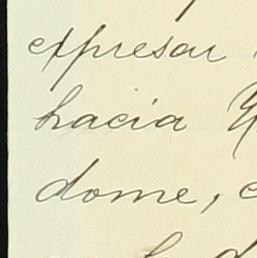 expresar
hacia
dome,